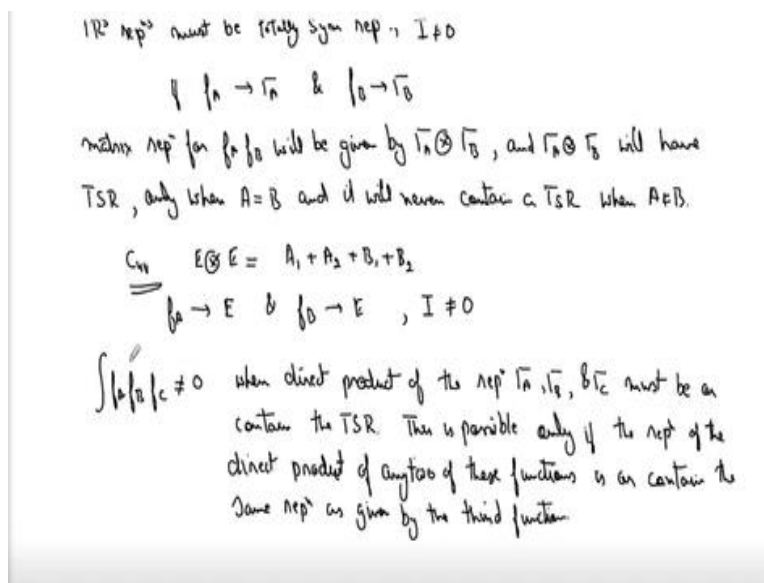 IRⁿ repⁿˢ must be totally sym rep ∵ I ≠ 0
if f_A → Γ_A & f_B → Γ_B
matrix repⁿ for f_A f_B will be given by Γ_A ⊗ Γ_B, and Γ_A ⊗ Γ_B will have
TSR, only when A = B and it will never contain a TSR when A ≠ B.
C₄ᵥ E ⊗ E = A₁ + A₂ + B₁ + B₂
f_A → E & f_B → E , I ≠ 0
∫ f_A f_B f_C ≠ 0 when direct product of the repⁿ Γ_A, Γ_B, & Γ_C must be or
contain the TSR. This is possible only if the repⁿ of the
direct product of any two of these functions is or contain the
same repⁿ as given by the third function